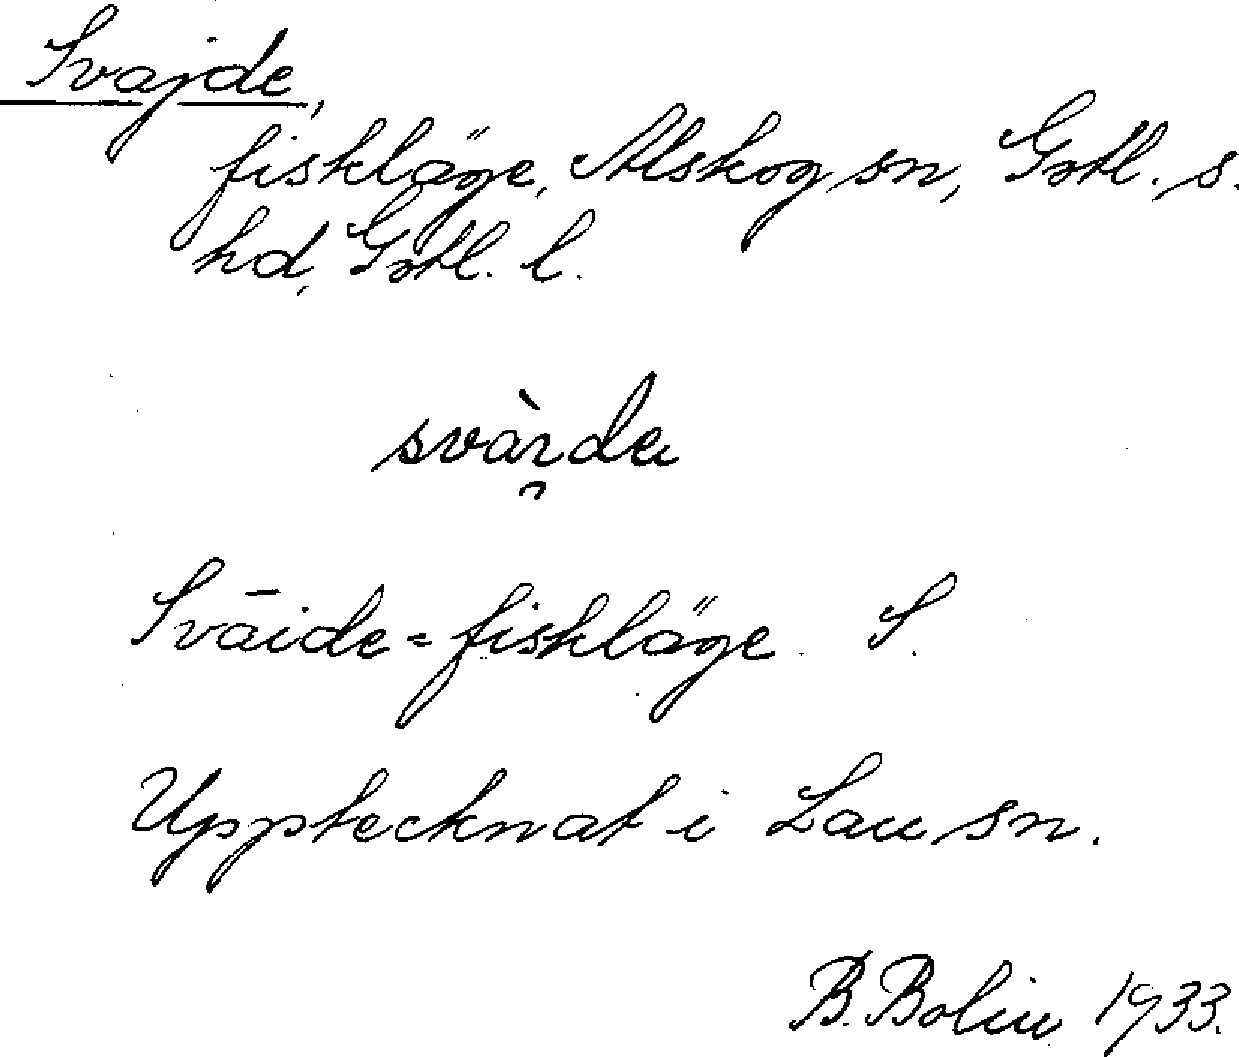 Svajde,
fiskläge, Alskog sn, Gotl. s.
hd, Gotl. l.
Svāide = fiskläge. S.
Upptecknat i Lau sn.
B. Bolin 1933.